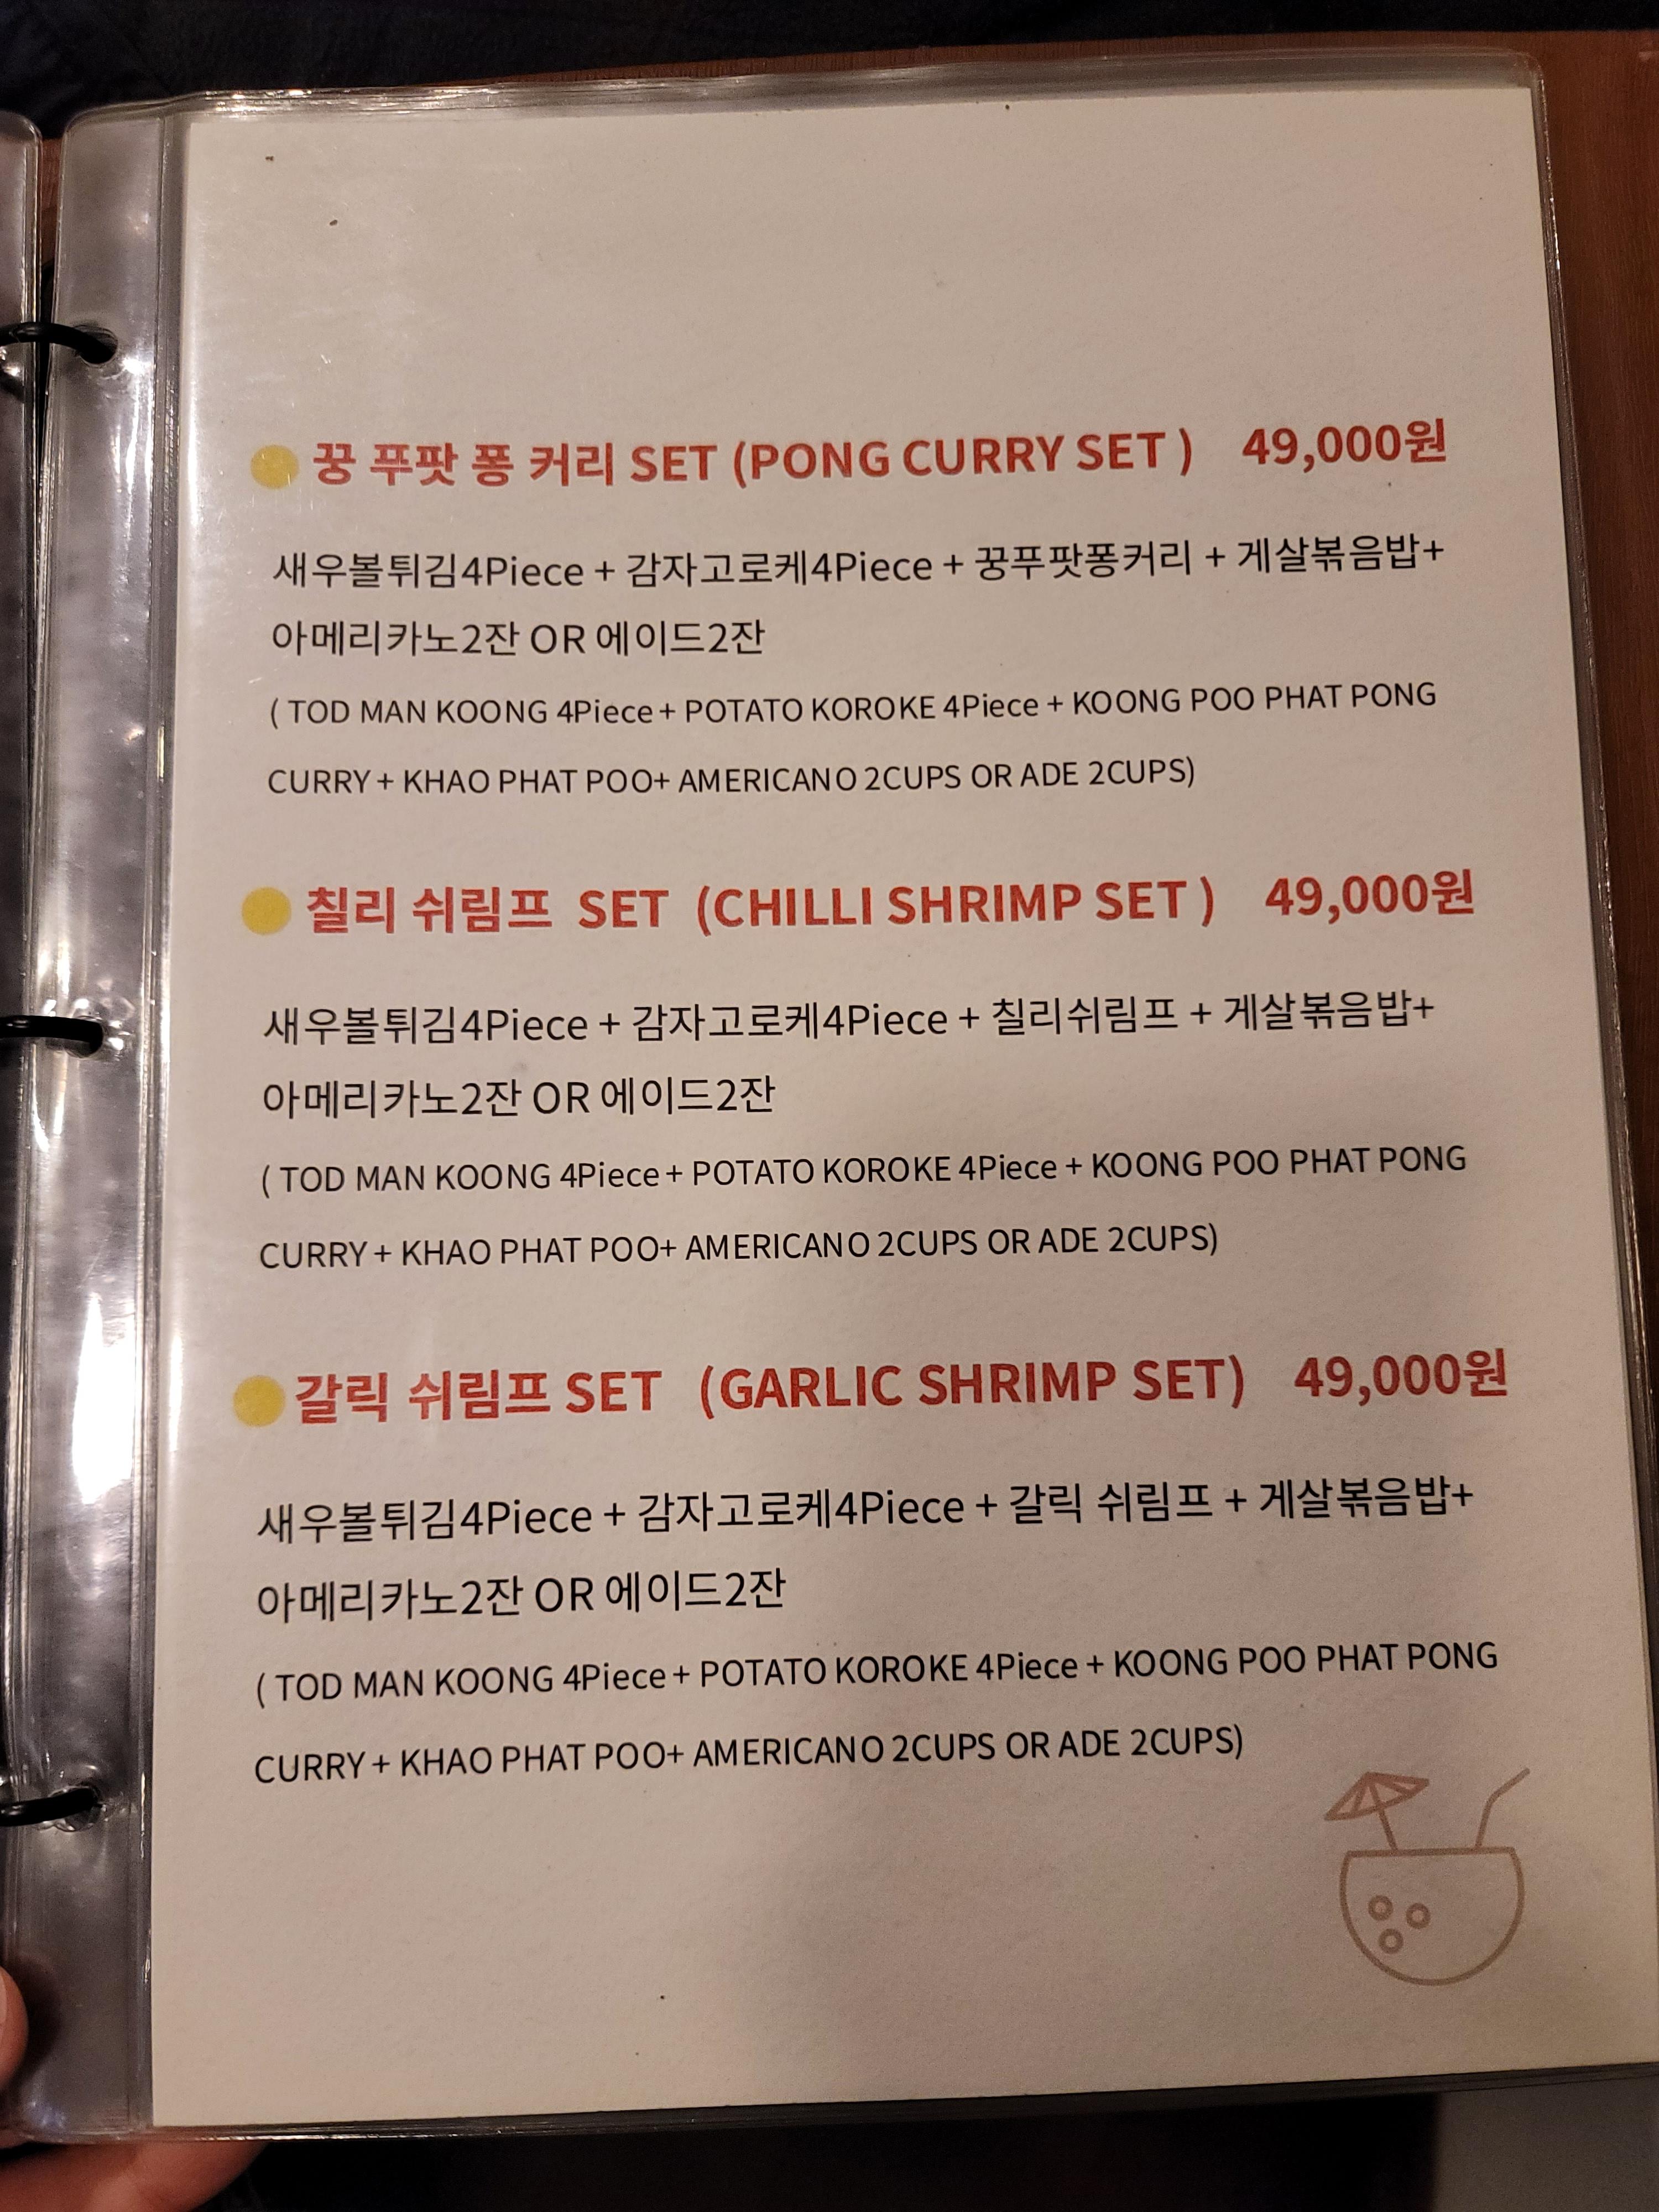 꿍 푸팟 퐁 커리 SET (PONG CURRY SET ) 49,000원
새우볼튀김4Piece + 감자고로케4Piece + 꿍푸팟퐁커리 + 게살볶음밥+
아메리카노2잔 OR 에이드2잔
( TOD MAN KOONG 4Piece + POTATO KOROKE 4Piece + KOONG POO PHAT PONG
CURRY + KHAO PHAT POO+ AMERICANO 2CUPS OR ADE 2CUPS)
칠리 쉬림프 SET (CHILLI SHRIMP SET ) 49,000원
새우볼튀김4Piece + 감자고로케4Piece + 칠리쉬림프 + 게살볶음밥+
아메리카노2잔 OR 에이드2잔
( TOD MAN KOONG 4Piece + POTATO KOROKE 4Piece + KOONG POO PHAT PONG
CURRY + KHAO PHAT POO+ AMERICANO 2CUPS OR ADE 2CUPS)
갈릭 쉬림프 SET (GARLIC SHRIMP SET) 49,000원
새우볼튀김4Piece + 감자고로케4Piece + 갈릭 쉬림프 + 게살볶음밥+
아메리카노2잔 OR 에이드2잔
( TOD MAN KOONG 4Piece + POTATO KOROKE 4Piece + KOONG POO PHAT PONG
CURRY + KHAO PHAT POO+ AMERICANO 2CUPS OR ADE 2CUPS)